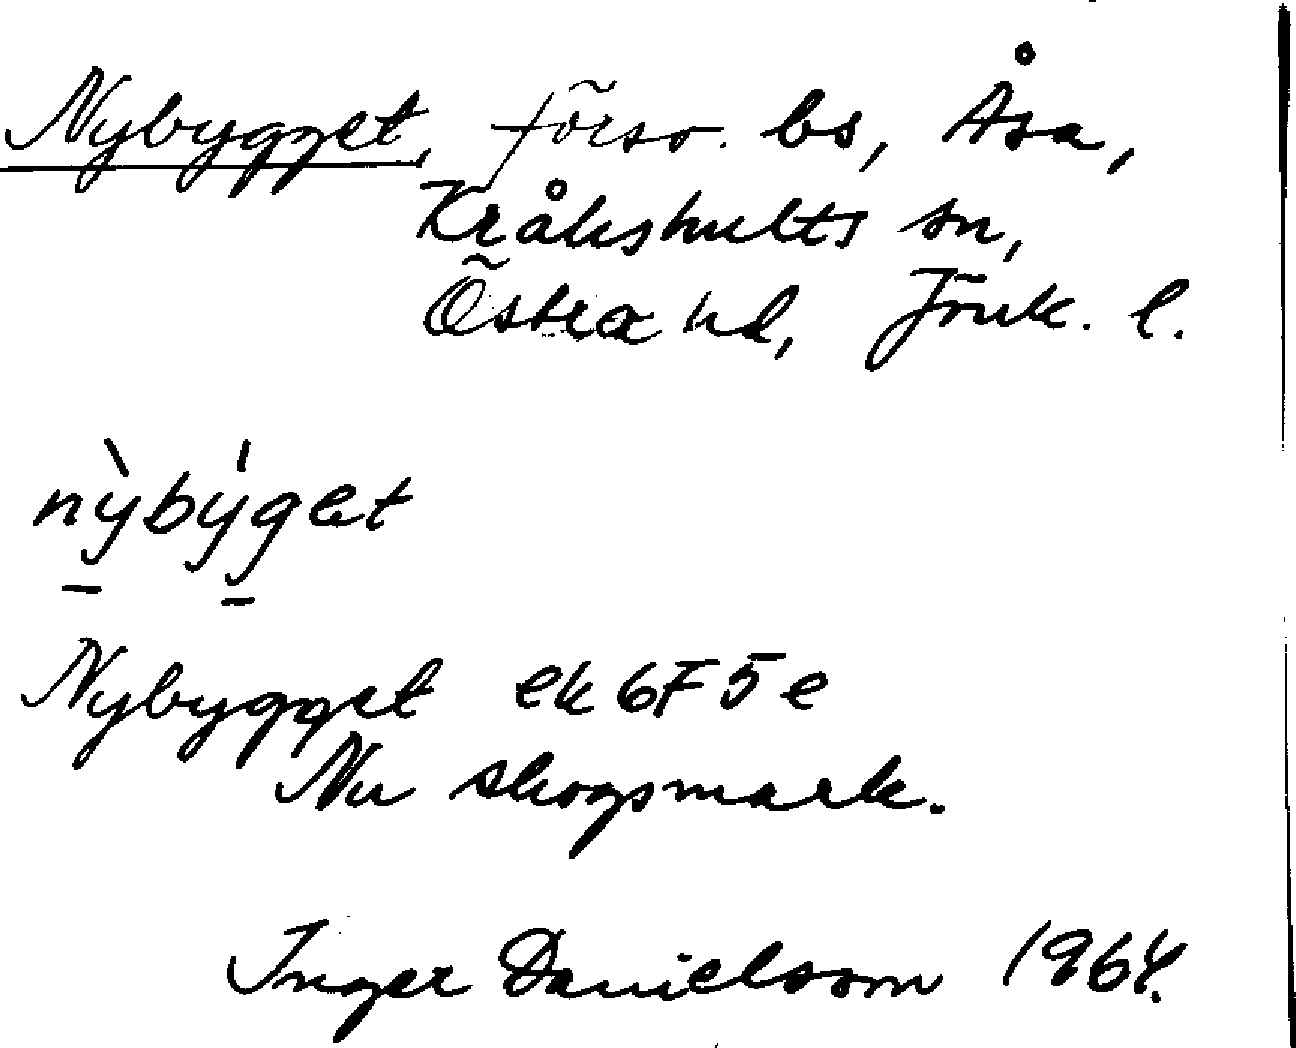 Nybygget, försv. bs, Åsa,
Kråkshults sn,
Östra hd, Jönk. l.
nỳbýget
Nybygget ek 6F5e
Nu skogsmark.
Inger Danielsson 1964.